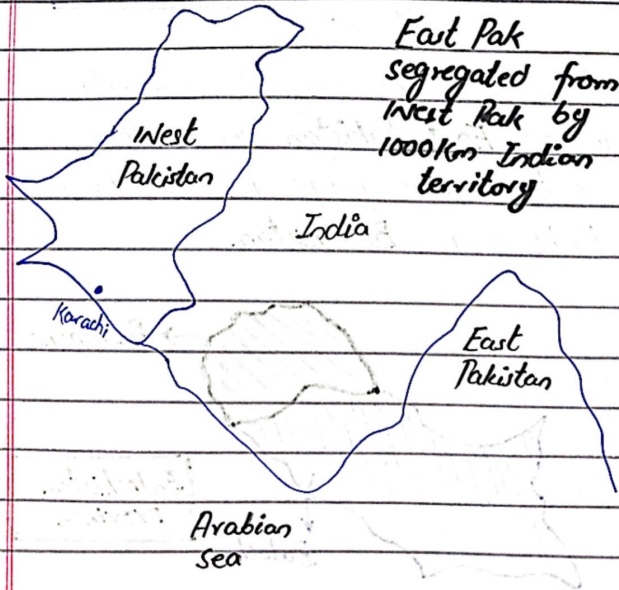 East Pak
segregated from
West Pak by
1000 Km Indian
territory
West
Pakistan
India
Karachi
East
Pakistan
Arabian
sea